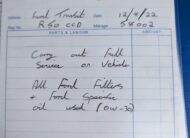 Ford Transit 12/4/22
R50 CCD 58002
PARTS & LABOUR AMOUNT
Carry out Full
Service on Vehicle
All Ford Filters
+ Ford Specific
oil used (0W-30)